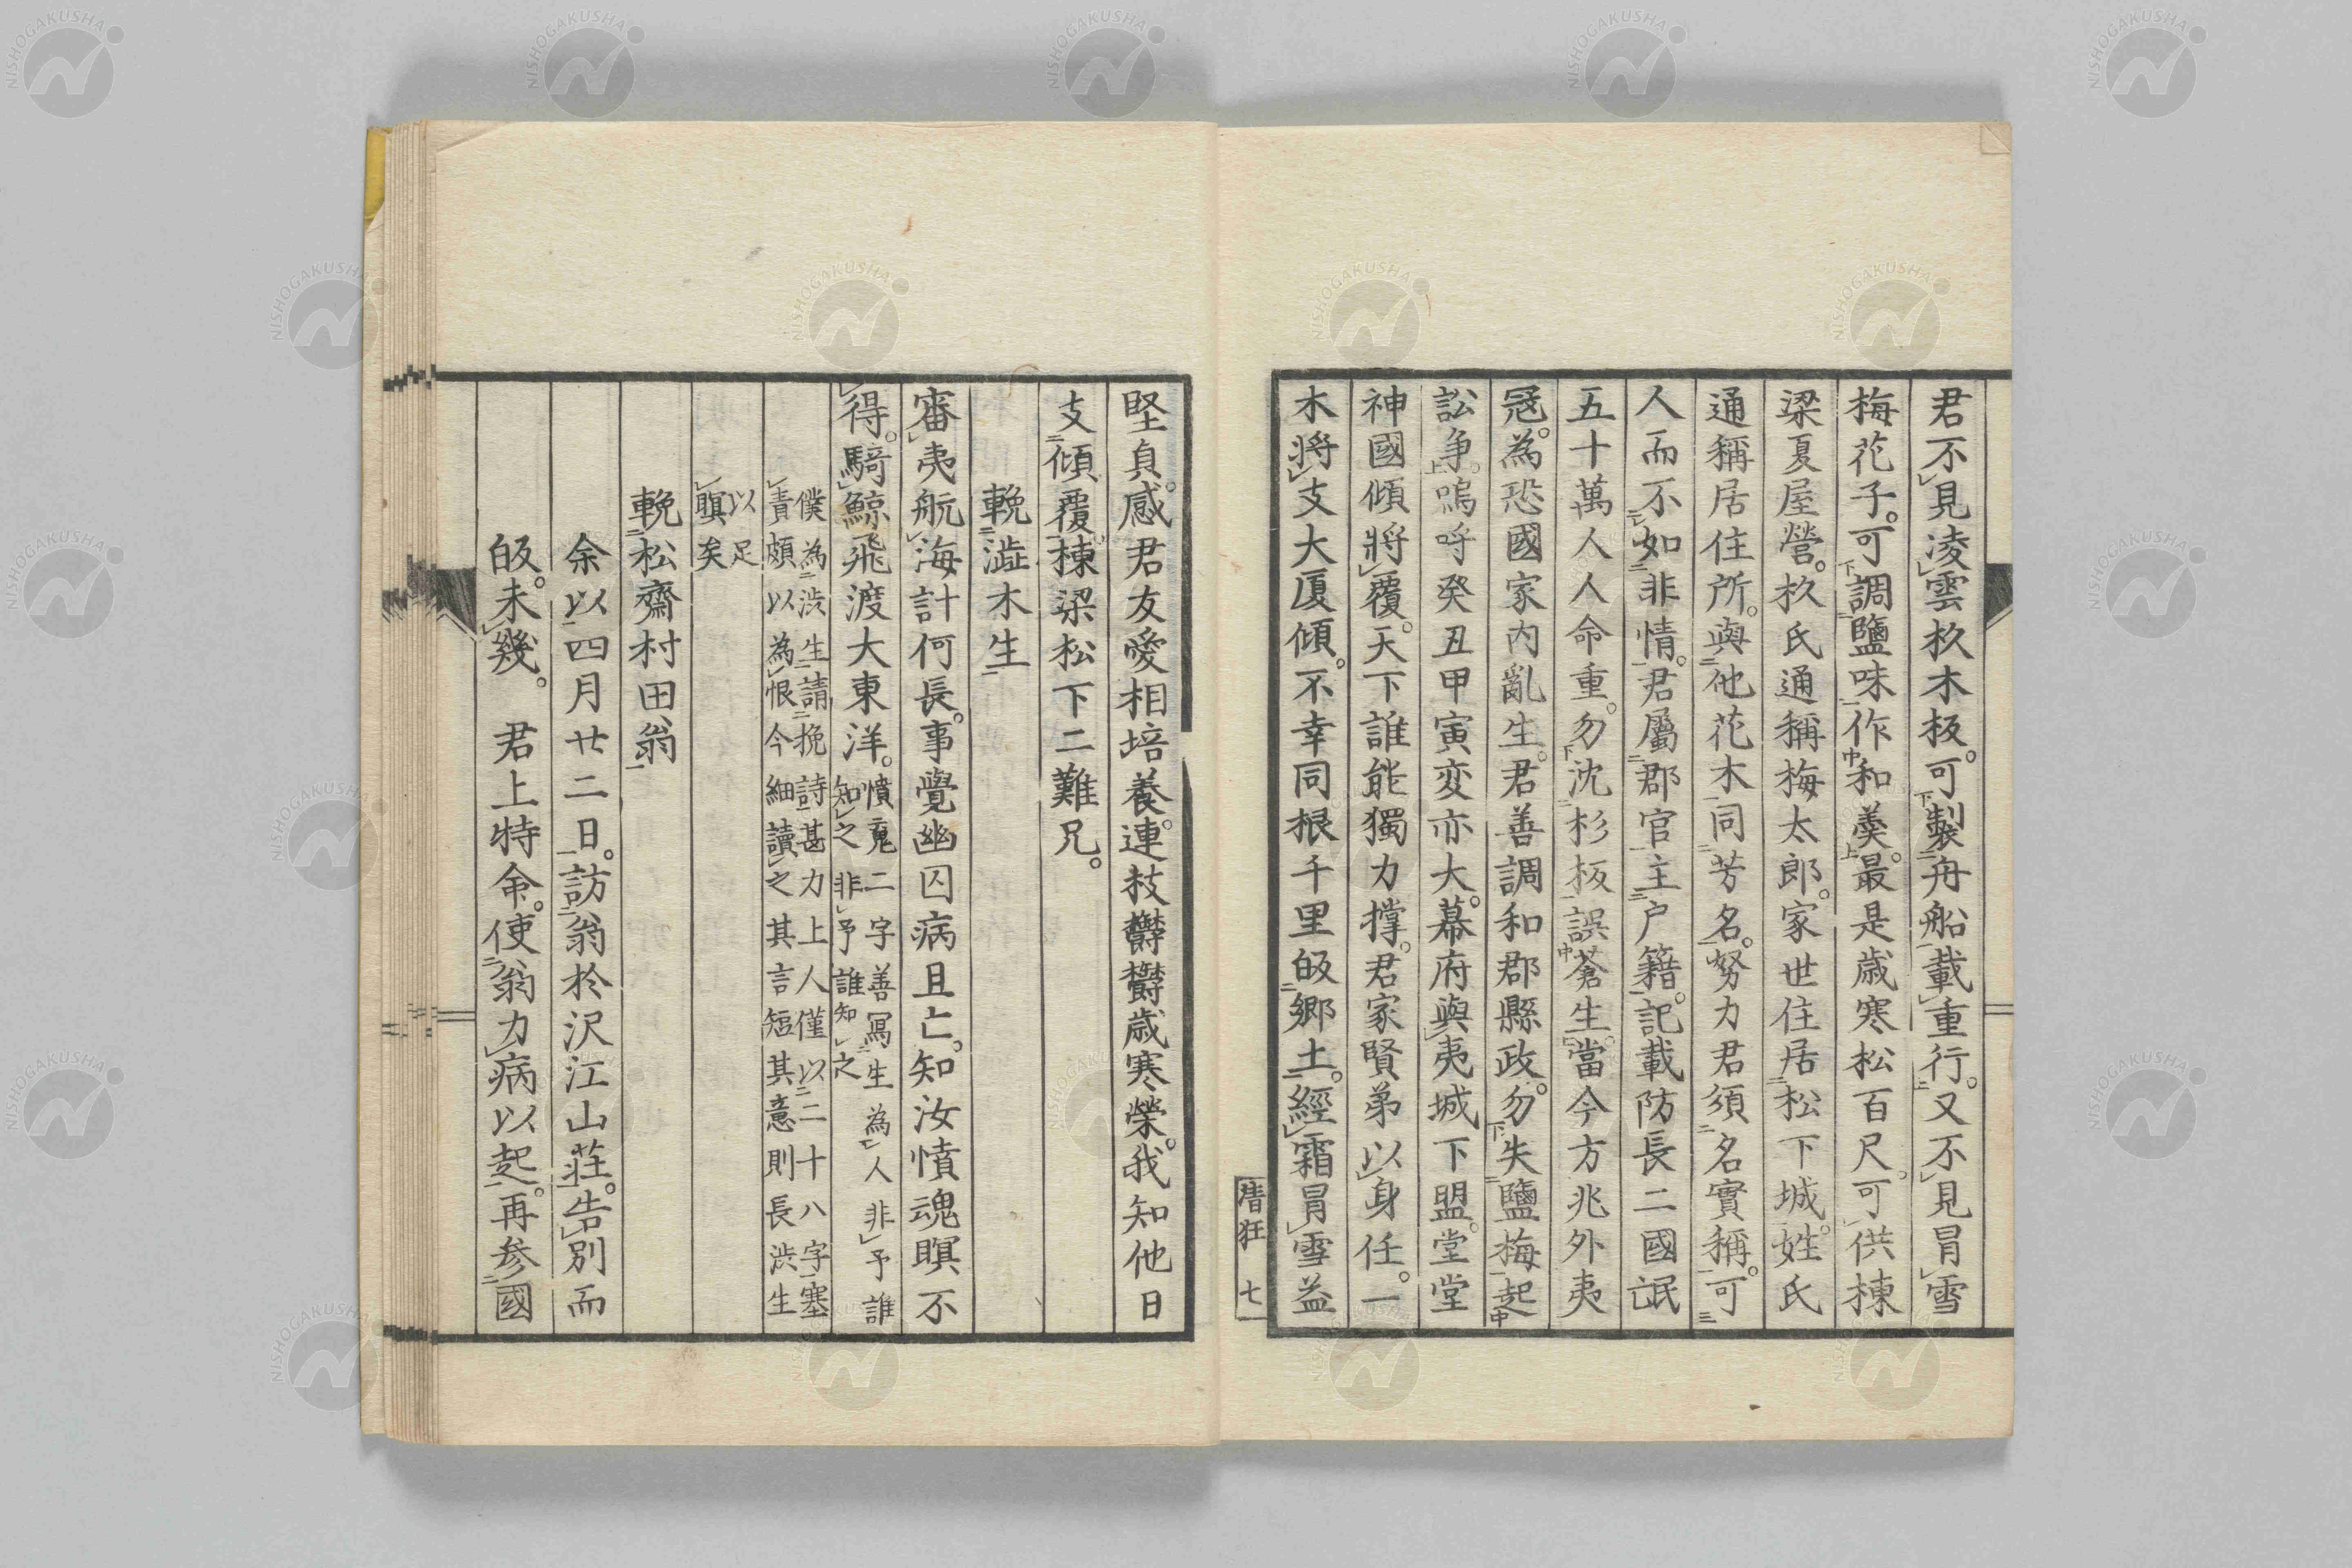 君不見凌雲杦木板。可製舟船載重行。又不見冒雪
梅花子。可調鹽味作和羹。最是歳寒松百尺。可供棟
梁夏屋營。杦氏通稱梅太郎。家世住居松下城。姓氏
通稱居住所。與他花木同芳名。努力君須名實稱。可
人而不如非情。君屬郡官主戸籍。記載防長二國氓
五十萬人人命重。勿沈杉板誤蒼生。當今方兆外夷
冦。為恐國家内亂生。君善調和郡縣政。勿失鹽梅起
訟争。嗚呼癸丑甲寅変亦大。幕府與夷城下盟。堂堂
神國傾將覆。天下誰能獨力撑。君家賢弟以身任。一
木将支大厦傾。不幸同根千里皈鄉土。經霜冒雪益
唐狂 七
堅貞。感君友愛相培養。連枝欝欝歳寒榮。我知他日
支傾覆。棟梁松下二難兄。
輓澁木生
審夷航海計何長。事覺幽囚病且亡。知汝憤魂瞑不
得。騎鯨飛渡大東洋。憤䰟二字善冩生為人非予誰
知之非予誰知之
僕為渋生請挽詩甚力上人僅以二十八字塞
責頗以為恨今細讀之其言短其意則長渋生
以足
瞑矣
輓松齋村田翁
余以四月廿二日。訪翁於沢江山荘。告別而
皈。未幾。君上特命。使翁力病以起。再参國
NISHOGAKUSHA